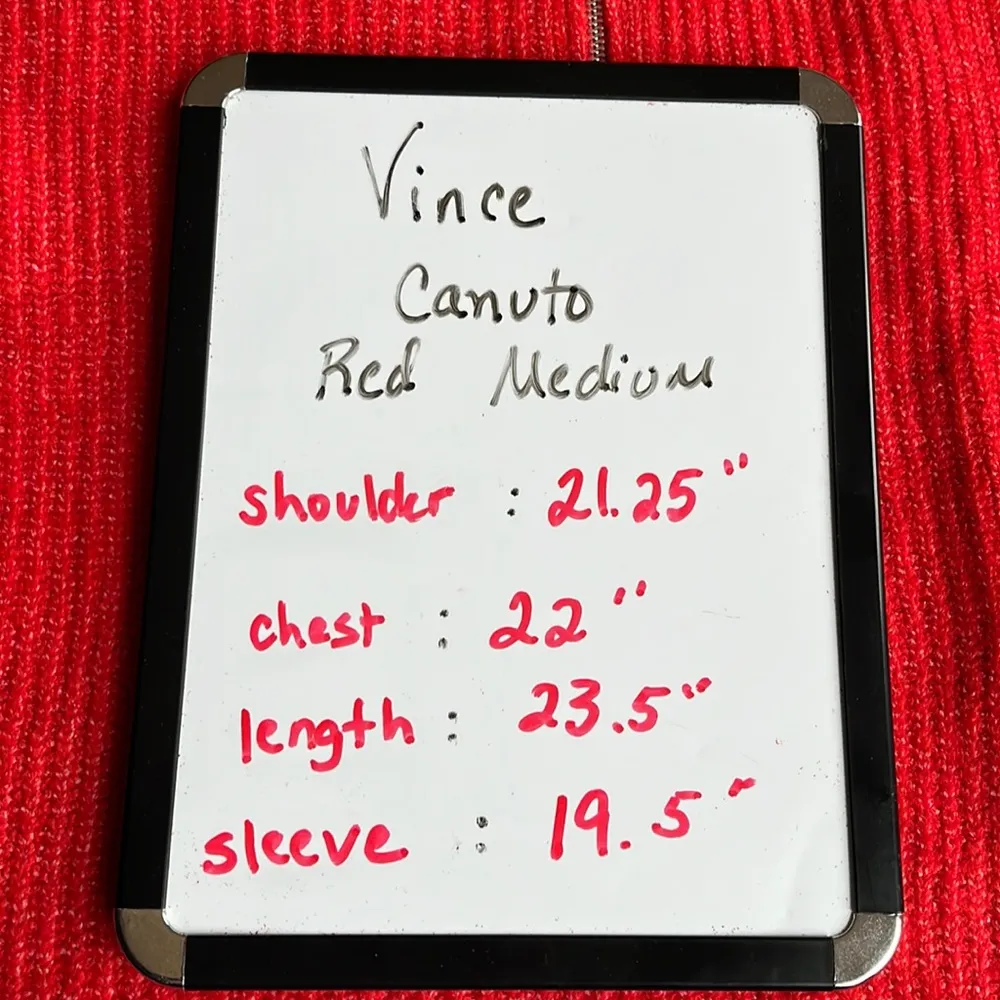 Vince
Canuto
Red Medium
shoulder : 21.25"
chest : 22"
length : 23.5"
sleeve : 19.5"